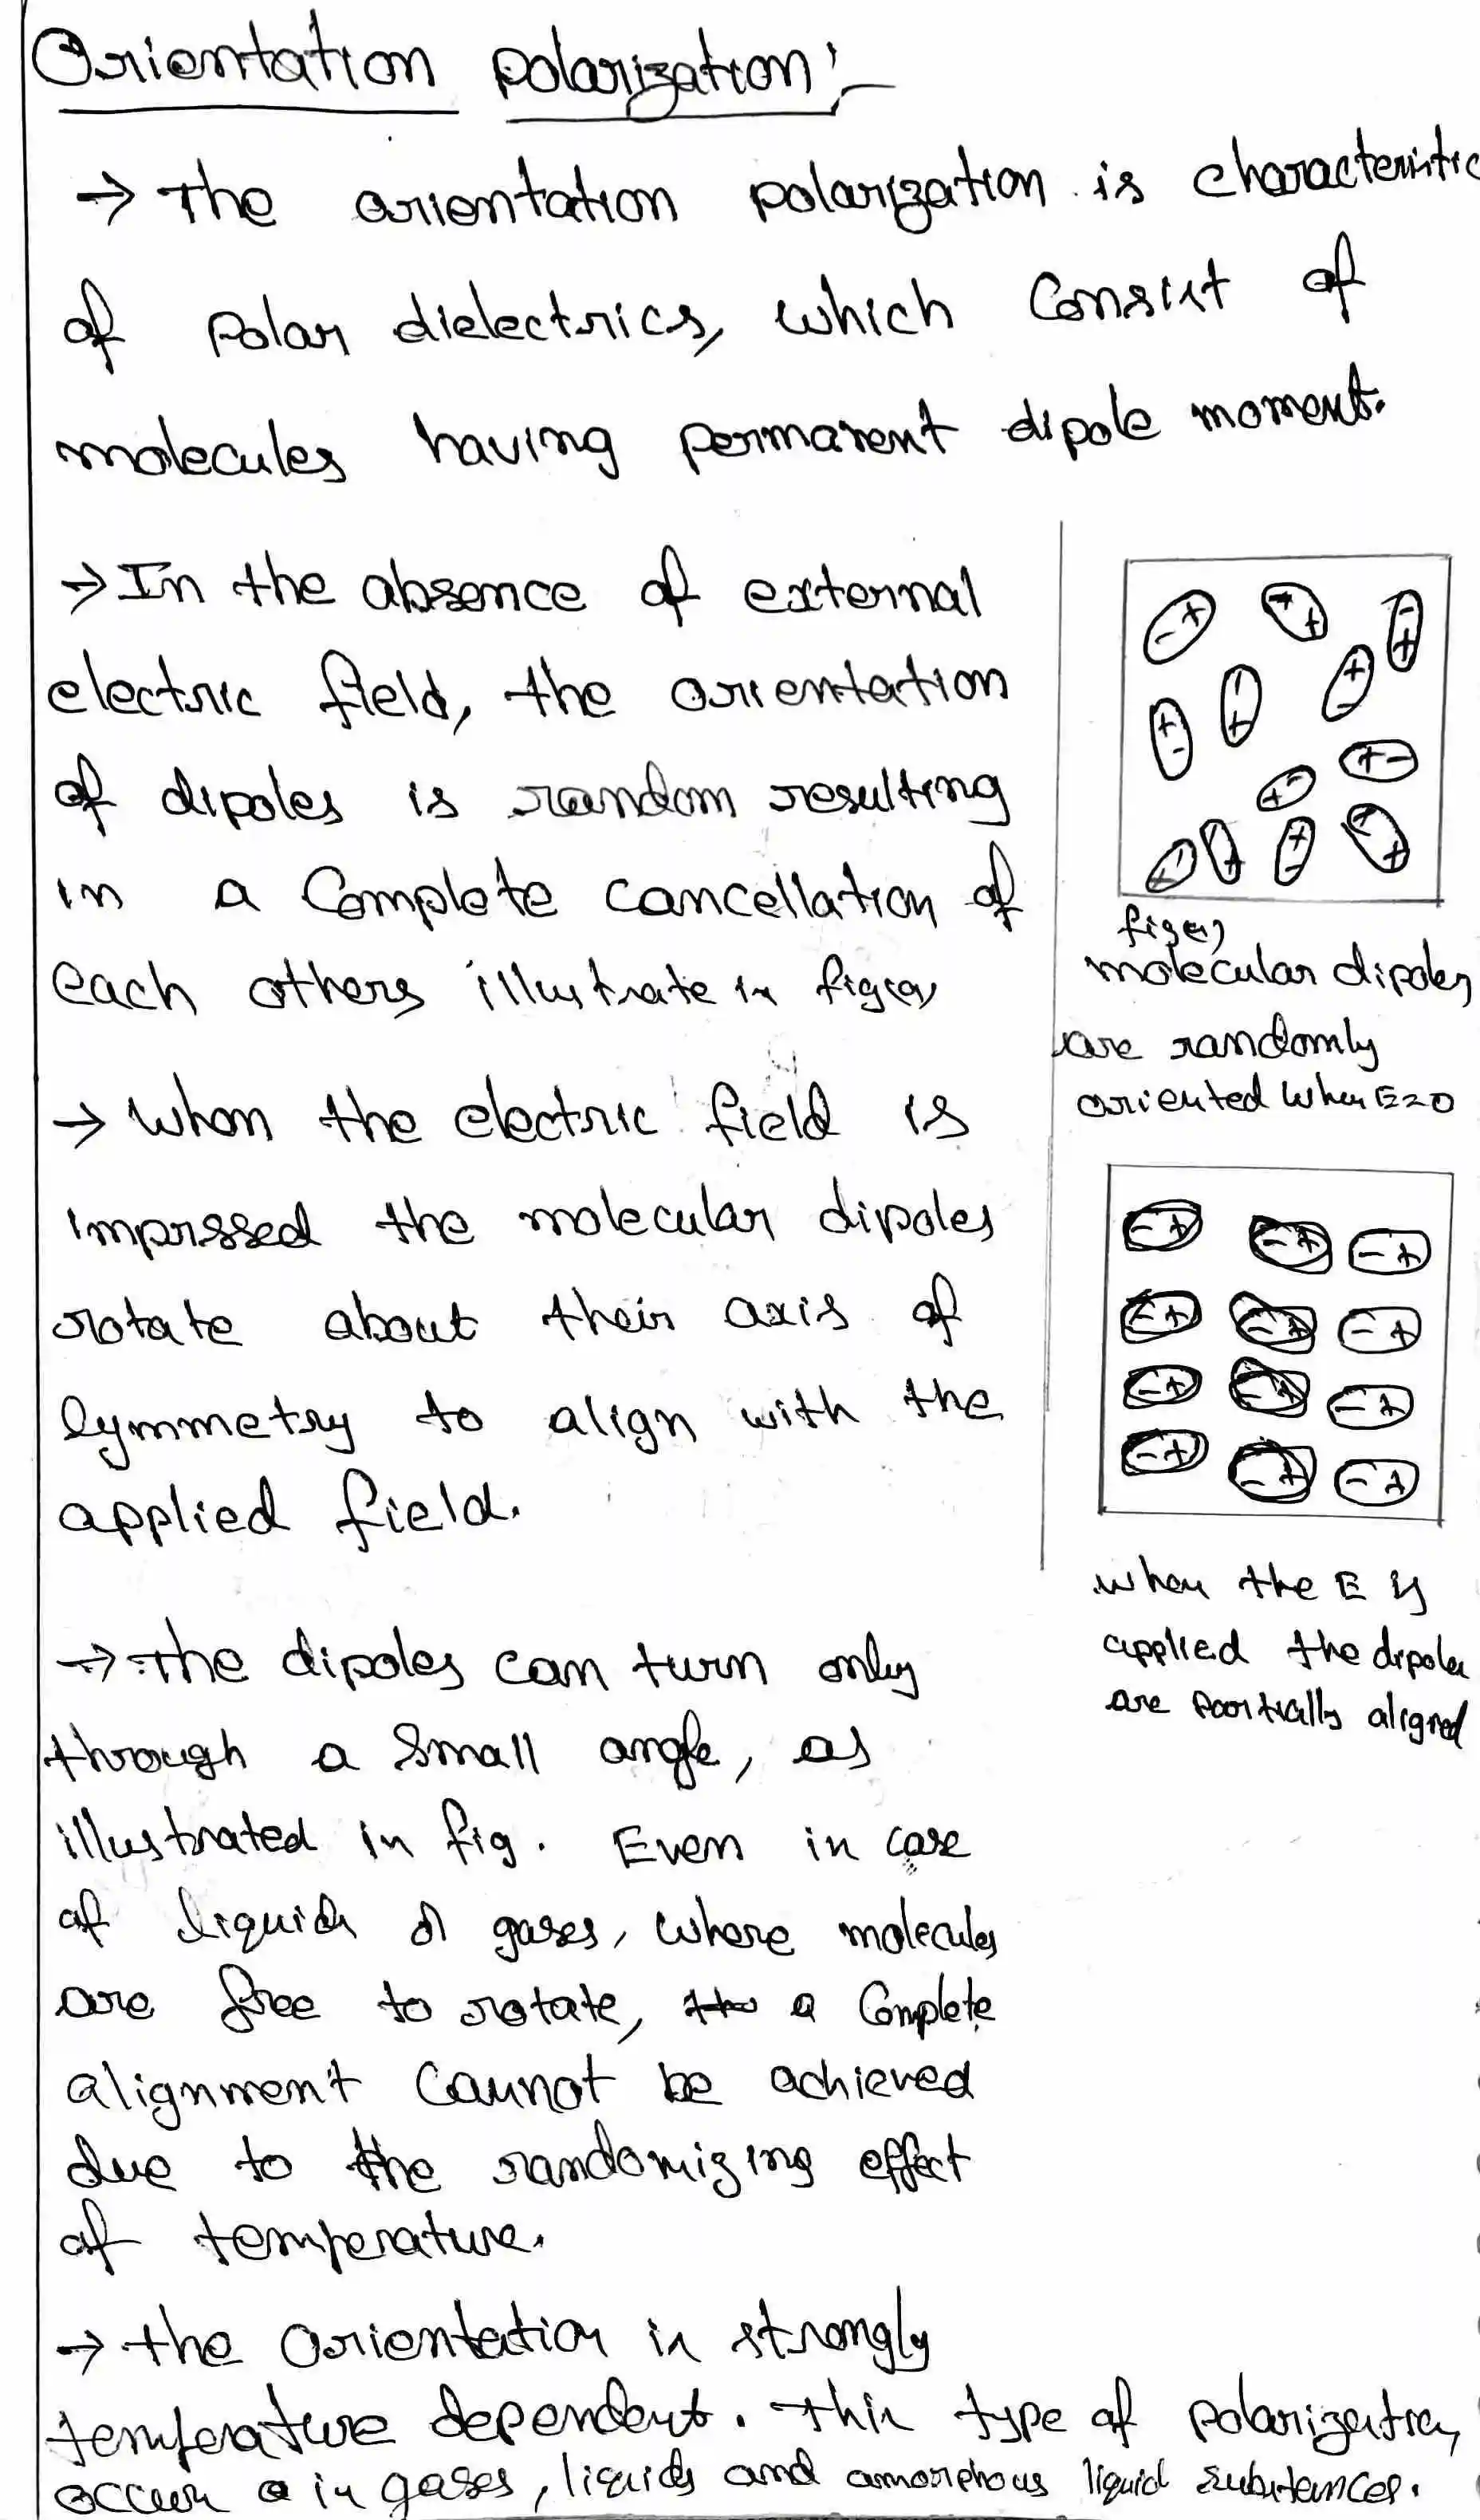 Orientation polarization:-
→ The orientation polarization is characteristic
of polar dielectrics, which consist of
molecules having permanent dipole moment.
→ In the absence of external
electric field, the orientation
of dipoles is random resulting
in a complete cancellation of
each others illustrate in fig(a)
fig(a)
molecular dipoles
are randomly
oriented when E=0
→ when the electric field is
imprssed the molecular dipoles
rotate about their axis of
symmetry to align with the
applied field.
when the E is
applied the dipoles
are partially aligned
→ the dipoles can turn only
through a small angle, as
illustrated in fig. Even in case
of liquids or gases, where molecules
are free to rotate, a complete
alignment cannot be achieved
due to the randomizing effect
of temperature.
→ the orientation is strongly
temperature dependent. this type of polarization
occur in gases, liquids and amorphous liquid substances.